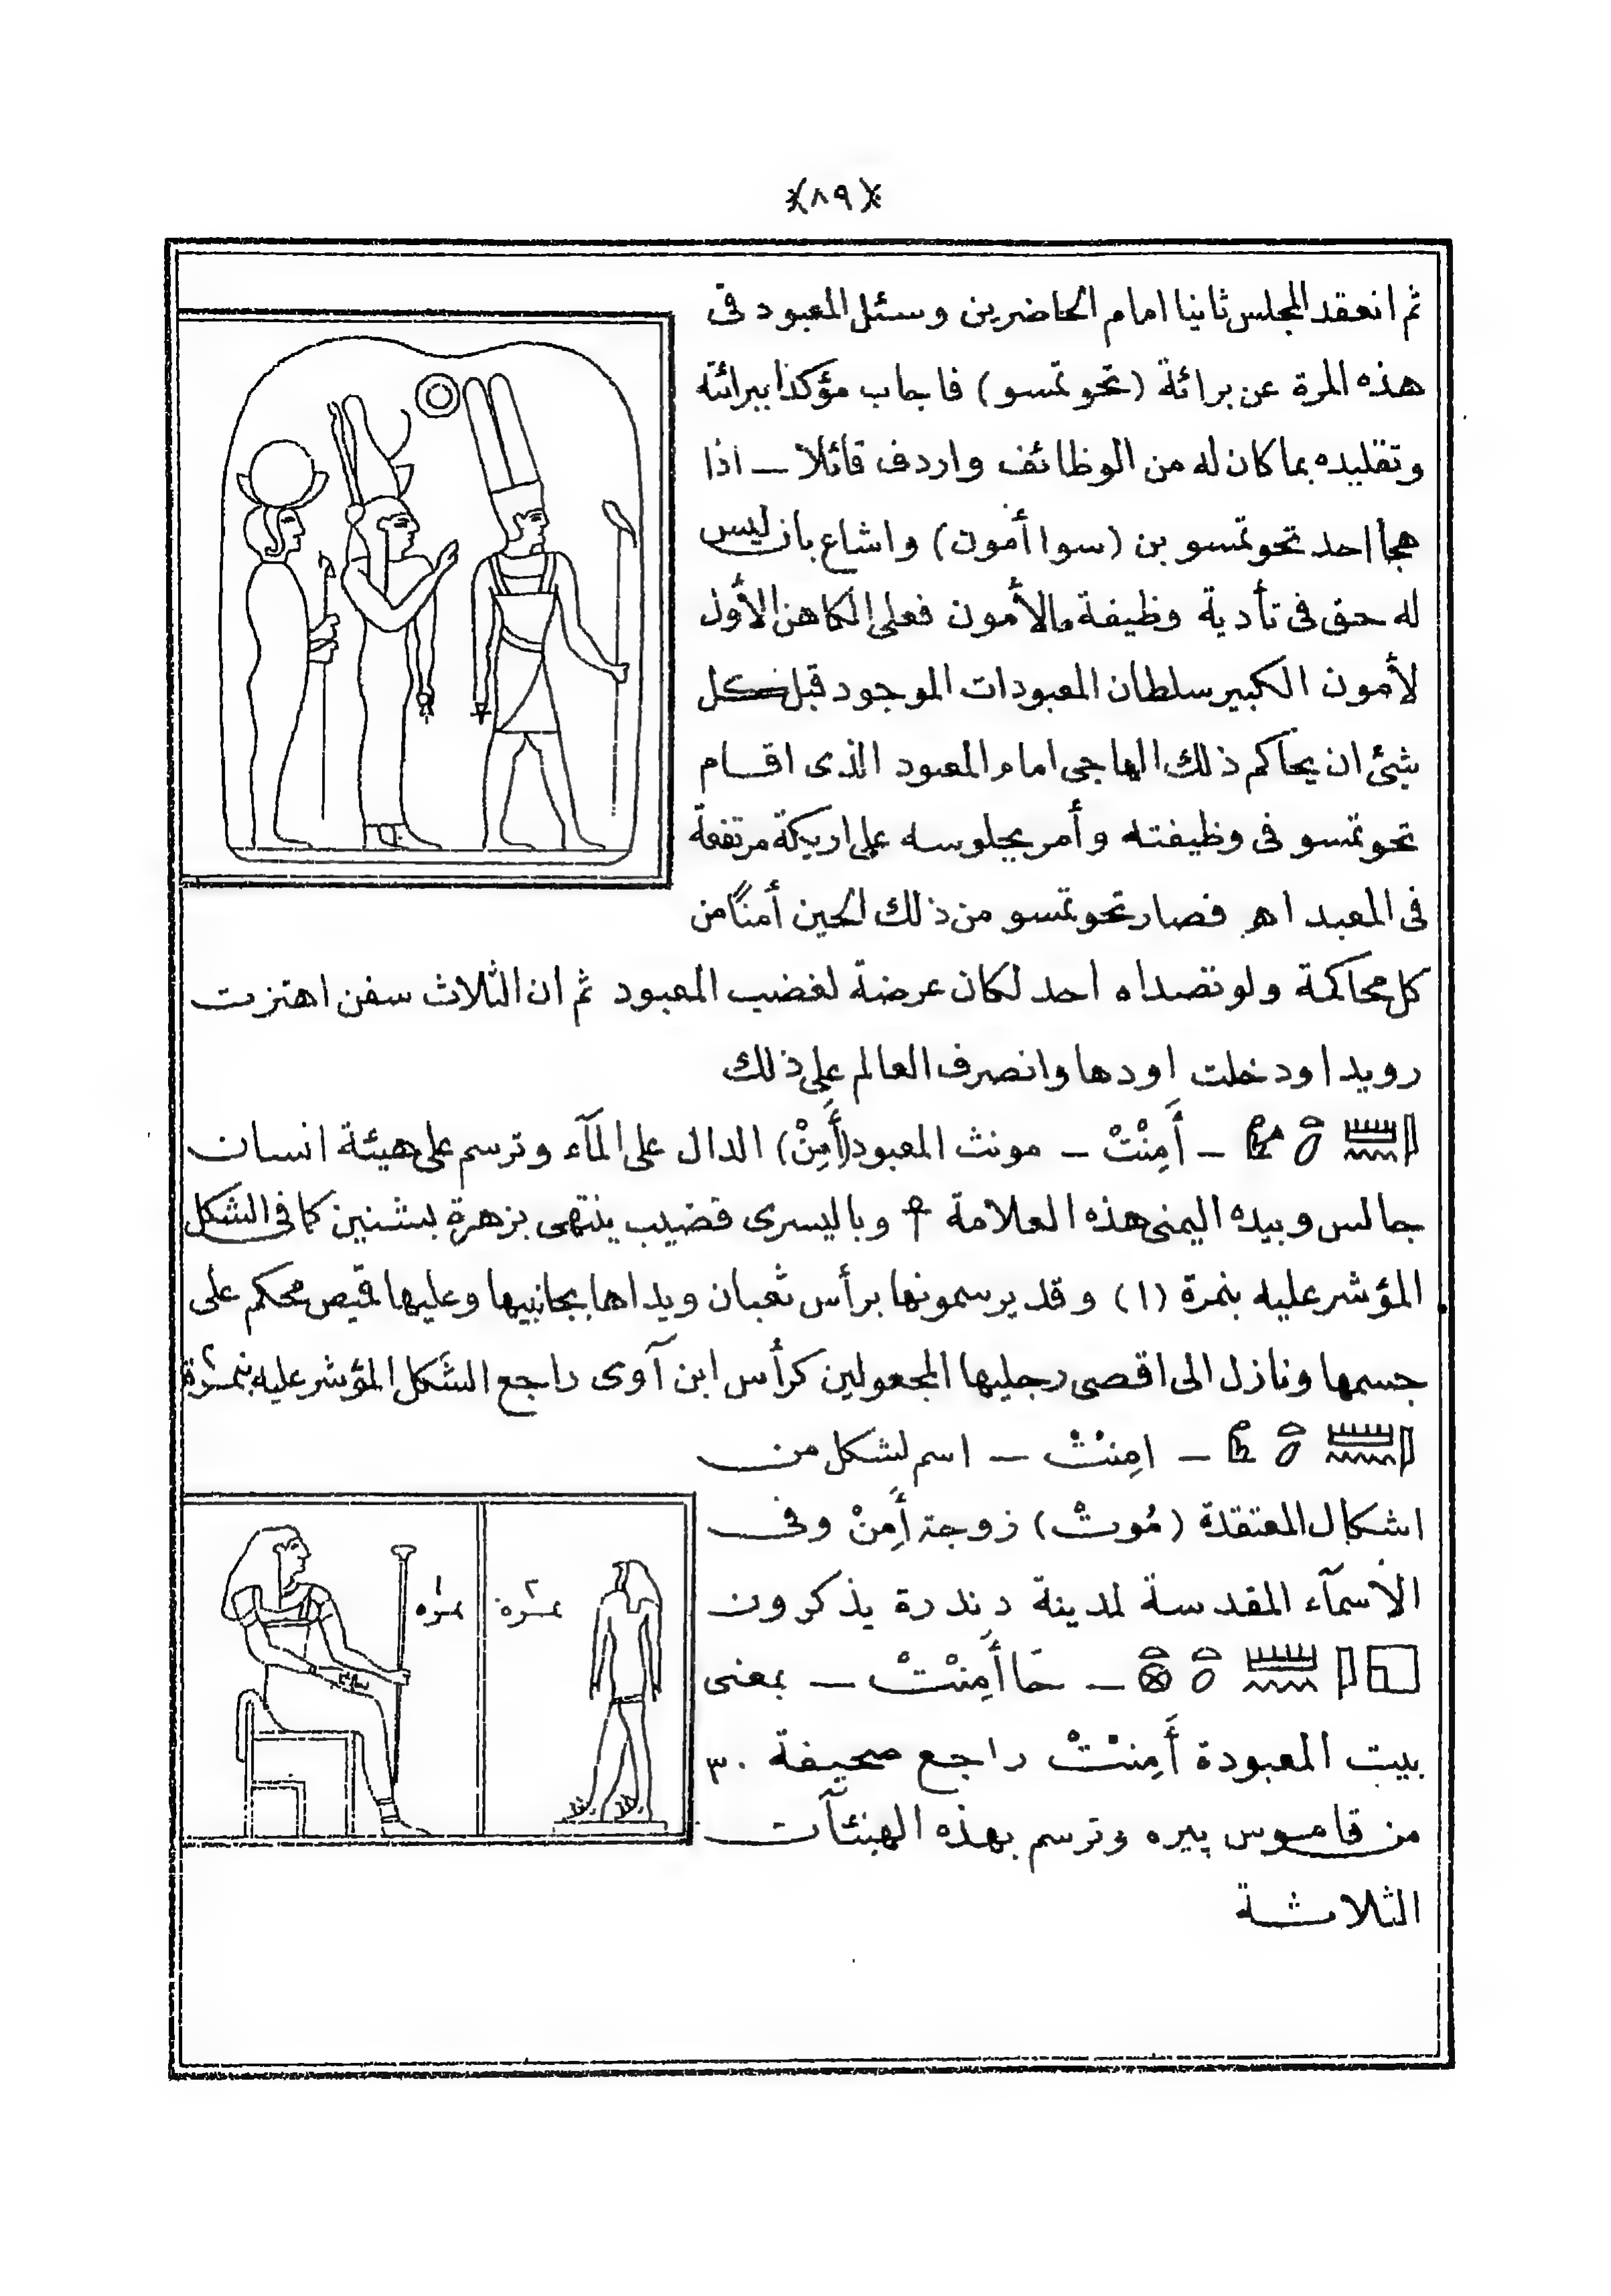 (٨٩)
ثم انعقد المجلس ثانيا امام الحاضرين وسئل المعبود فى
هذه المرة عن برائة (تحوتمسو) فاجاب مؤكدا ببرائته
وتقليده بما كان له من الوظائف واردف قائلا ــ اذا
هجا احد تحوتمسو بن (سوا أمون) واشاع بان ليس
له حق فى تأدية وظيفة مالأمون فعلى الكاهن الأول
لأمون الكبير سلطان المعبودات الموجود قبل كل
شئ ان يحاكم ذلك الهاجى امام المعبود الذى اقام
تحوتمسو فى وظيفته وأمر بجلوسه على اريكة مرتفعة
فى المعبد اهـ فصار تحوتمسو من ذلك الحين أمنًا من
كل محاكمة ولو تصداه احد لكان عرضة لغضب المعبود ثم ان الثلاث سفن اهتزت
رويدا ودخلت اودها وانصرف العالم على ذلك
ــ أَمِنْتْ ــ مونث المعبود (أَمِنْ) الدال على المآء وترسم على هيئة انسان
جالس وبيده اليمنى هذه العلامة ☥ وباليسرى قضيب ينتهى بزهرة بشنين كما فى الشكل
المؤشر عليه بنمرة (١) وقد يرسمونها برأس ثعبان ويداها بجانبيها وعليها قميص محكم على
جسمها ونازل الى اقصى رجليها المجعولين كرأس ابن آوى راجع الشكل المؤشر عليه بنمرة ٢
ــ امِنْتْ ــ اسم لشكل من
اشكال المعتقدة (مُوتْ) زوجة أَمِنْ وفى
الأسمآء المقدسة لمدينة دندرة يذكرون
ــ حَا أَمِنْتْ ــ بمعنى
بيت المعبودة أَمِنْتْ راجع صحيفة ٣٠
من قاموس پيره وترسم بهذه الهيئآت
الثلاثة
نمرة ١
نمرة ٢